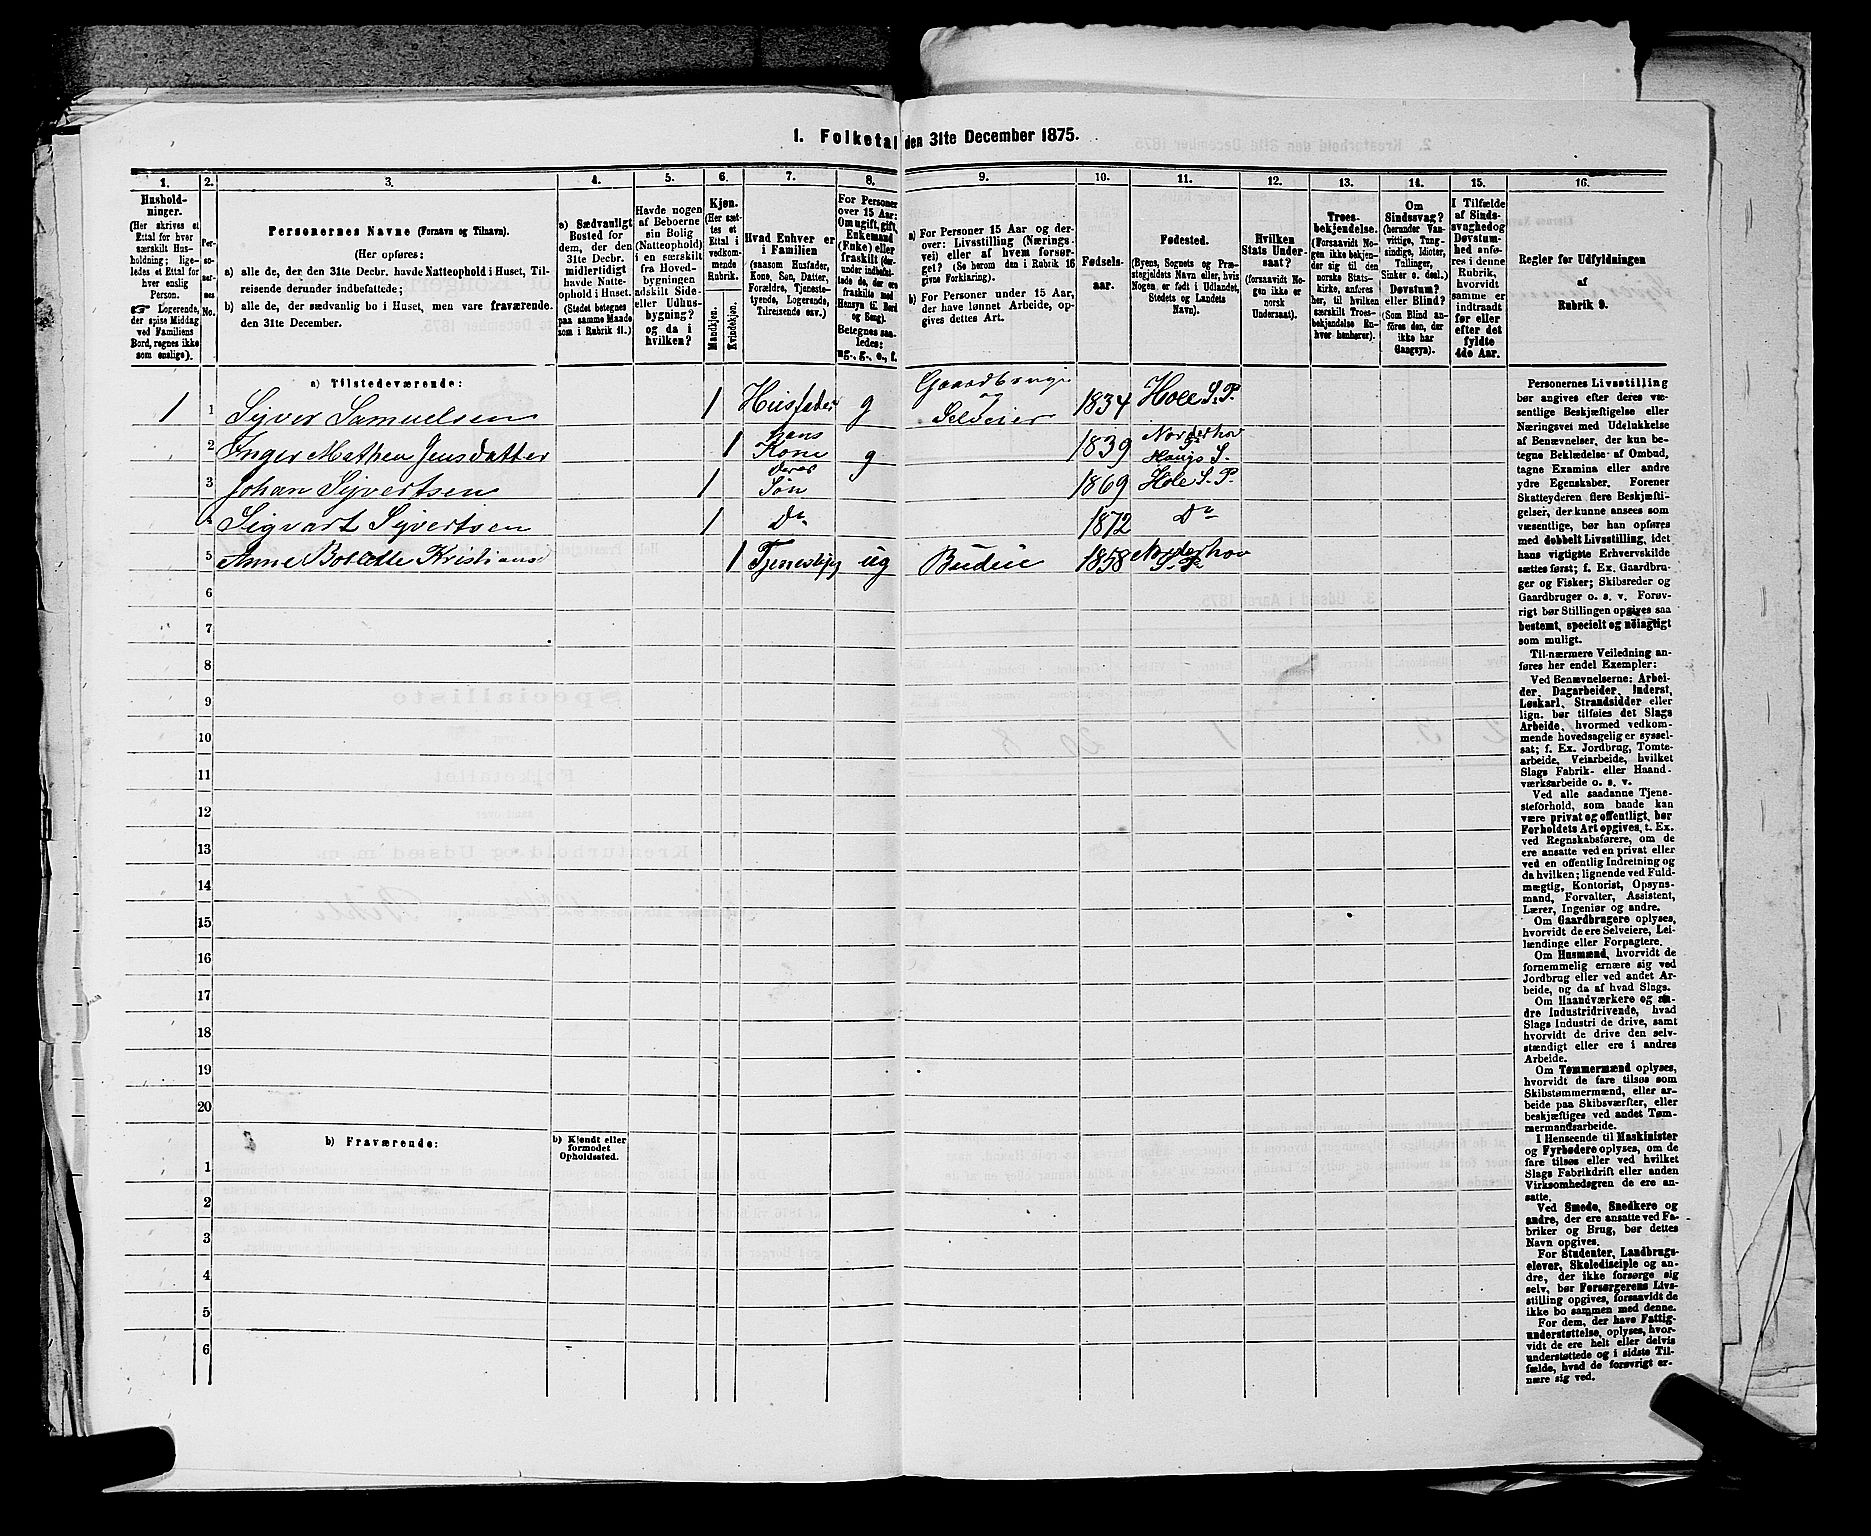 1. Folketal den 31te December 1875.
1. 2. 3. 4. 5. 6. 7. 8. 9. 10. 11. 12. 13. 14. 15. 16.
Hushold-
ninger.
(Her skrives et
Ettal for hver
særskilt Hus-
holdning; lige-
ledes et Ettal for
hver enslig
Person.
Logerende,
der spise Middag
ved Familiens
Bord, regnes ikke
som enslige).
Per-
so-
ner-
nes
No.
Personernes Navne (Fornavn og Tilnavn).
(Her opføres:
a) alle de, der den 31te Decbr. havde Natteophold i Huset, Til-
reisende derunder indbefattede;
b) alle de, der sædvanlig bo i Huset, men vare fraværende
den 31te December.
a) Sædvanligt
Bosted for
dem, der den
31te Decbr.
midlertidigt
havde Natte-
ophold i Huset.
(Stedet betegnes
paa samme Maade
som i Rubrik 11.)
Havde nogen
af Beboerne
sin Bolig
(Natteophold)
i en særskilt
fra Hoved-
bygningen
adskilt Side-
eller Udhus-
bygning?
og da i
hvilken?
Kjøn.
(Her sæt-
tes et
Ettal i
vedkom-
mende
Rubrik.
Mandkjøn.
Kvindekjøn.
Hvad Enhver er
i Familien
(saasom Husfader,
Kone, Søn, Datter,
Forældre, Tjeneste-
tyende, Logerende,
Tilreisende osv.)
For Personer
over 15 Aar:
Om ugift, gift,
Enkemand
(Enke) eller
fraskilt
Betegnes saa-
ledes:
ug., g., e., f.
a) For Personer 15 Aar og der-
over: Livsstilling (Nærings-
vei) eller af hvem forsør-
get? (Se herom den i Rubrik 16
givne Forklaring).
b) For Personer under 15 Aar,
der have lønnet Arbeide, op-
gives dettes Art.
Fødsels-
aar.
Fødested.
(Byens, Sognets og Præ-
stegjeldets Navn eller, hvis
Nogen er født i Udlandet,
Stedets og Landets
Navn).
Hvilken
Stats Under-
saat?
(forsaavidt No-
gen ikke er
norsk
Undersaat).
Troes-
bekjendelse.
(Forsaavidt No-
gen ikke bekjen-
der sig til den
norske Stats-
kirke, anføres
her, til hvilken
særskilt Troes-
bekjendelse En-
hver henhører).
Om
Sindssvag?
(herunder Van-
vittige, Tung-
sindige, Idioter,
Tullinger,
Sinker o. desl.)
Døvstum?
eller Blind?
(Som Blind an-
føres den, der
ikke har
Gangsyn).
I Tilfælde
af Sinds-
svaghed og
Døvstum-
hed anfø-
res i denne
Rubrik,
hvorvidt
samme er
indtraadt
før eller
efter det
fyldte
4de Aar.
Regler for Udfyldningen
af
Rubrik 9.
a) Tilstedeværende:
1 1 Syver Samuelsen 1 Husfader g Gaardbruger og Selveier 1834 Hole S. P.
2 Inger Mathea Jensdatter 1 hans Kone g 1839 Norderhov Haugs S.
3 Johan Syvertsen 1 deres Søn 1869 Hole S. P.
4 Sigvart Syvertsen 1 Do 1872 Do
5 Anne Bollette Kristians 1 Tjenestepg ug Budeie 1858 Norderhov S. P.
6
7
8
9
10
11
12
13
14
15
16
17
18
19
20
b) Fraværende:
b) Kjendt eller
formodet
Opholdssted.
1
2
3
4
5
6
Personernes Livsstilling
bør angives efter deres væ-
sentlige Beskjæftigelse eller
Næringsvei med Udelukkelse
af Benævnelser, der kun be-
tegne Beklædelse af Ombud,
tagne Examina eller andre
ydre Egenskaber. Forener
Skatteyderen flere Beskjæfti-
gelser, der kunne ansees som
væsentlige, bør han opføres
med dobbelt Livsstilling, idet
hans vigtigste Erhvervskilde
sættes først; f. Ex. Gaardbru-
ger og Fisker; Skibsreder og
Gaardbruger o. s. v. Forøv-
rigt bør Stillingen opgives saa
bestemt, specielt og nøiagtigt
som muligt.
Til nærmere Veiledning an-
føres her endel Exempler:
Ved Benævnelserne: Arbei-
der, Dagarbeider, Inderst,
Løskarl, Strandsidder eller
lign. bør tilføies det Slags
Arbeide, hvormed vedkom-
mende hovedsagelig er syssel-
sat; f. Ex. Jordbrug, Tomte-
arbeide, Veiarbeide, hvilket
Slags Fabrik- eller Haand-
værksarbeide o. s. v.
Ved alle saadanne Tjene-
steforhold, som baade kan
være privat og offentligt, bør
Forholdets Art opgives, t. Ex.
ved Regnskabsførere, om de
ere ansatte ved en privat eller
ved en offentlig Indretning og
da hvilken; lignende ved Fuld-
mægtig, Kontorist, Opsyns-
mand, Forvalter, Assistent,
Lærer, Ingeniør og andre.
Om Gaardbrugere oplyses,
hvorvidt de ere Selveiere, Lei-
lændinge eller Forpagtere.
Om Husmænd, hvorvidt de
fornemmelig ernære sig ved
Jordbrug eller ved andet Ar-
beide, og da af hvad Slags.
Om Haandværkere og an-
dre Industridrivende, hvad
Slags Industri de drive, samt
hvorvidt de drive den selv-
stændigt eller ere i andres
Arbeide.
Om Tømmermænd oplyses,
hvorvidt de fare tilsøs som
Skibstømmermænd, eller ar-
beide paa Skibsværfter, eller
beskjæftiges ved andet Tøm-
mermandsarbeide.
I Henseende til Maskinister
og Fyrbødere oplyses, om de
fare tilsøs eller ved hvilket
Slags Fabrikdrift eller anden
Virksomhedsgren de ere an-
satte.
Ved Smede, Snedkere og
andre, der ere ansatte ved Fa-
briker og Brug, bør dettes
Navn opgives.
For Studenter, Landbrugs-
elever, Skoledisciple og an-
dre, der ikke forsørge sig
selv, bør Forsørgerens Livs-
stilling opgives, forsaavidt de
ikke bo sammen med denne.
For dem, der have Fattig-
understøttelse, oplyses, hvor-
vidt de ere helt eller delvis
understøttede og i sidste Til-
fælde, hvad de forøvrigt er-
nære sig ved.